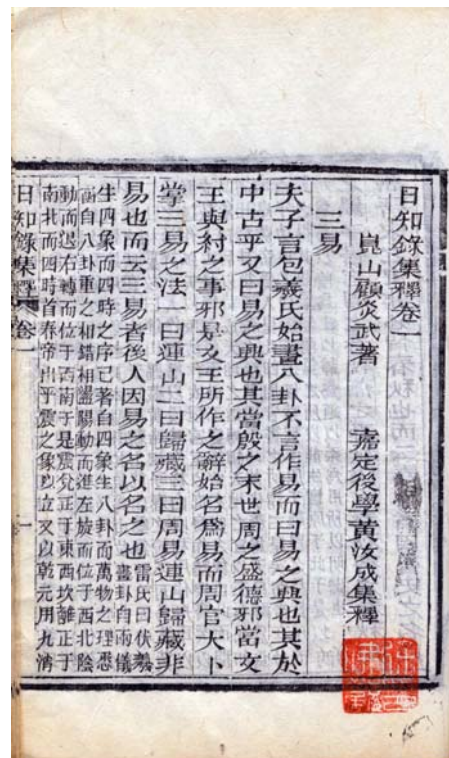 日知錄集釋卷一
崑山顧炎武著 嘉定後學黃汝成集釋
三易
夫子言包羲氏始畫八卦不言作易而曰易之興也其於
中古乎又曰易之興也其當殷之末世周之盛德邪當文
王與紂之事邪是文王所作之辭始名為易而周官大卜
掌三易之法一曰連山二曰歸藏三曰周易連山歸藏非
易也而云三易者後人因易之名以名之也雷氏曰伏羲
畫卦自兩儀
生四象而四時之序已著自四象生八卦而萬物之理悉
自八卦重之相錯相盪陽動而進左旋而位于西北陰
動而迟右轉而位于西南于是震兌正于東西坎離正于
南北而四時首春帝出乎震之象以立又以乾元用九淸
日知錄集釋 卷一 一